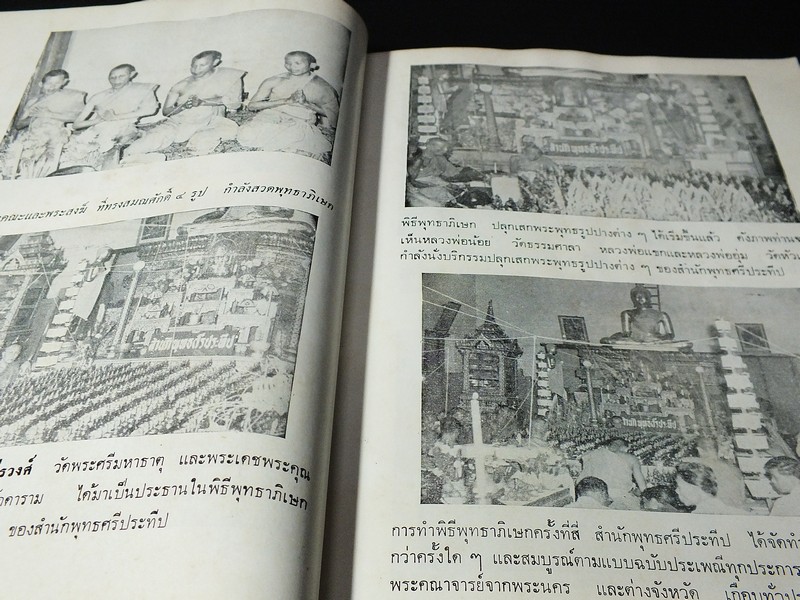 คณะและพระสงฆ์ ที่ทรงสมณศักดิ์ ๔ รูป กำลังสวดพุทธาภิเษก
สำนักพุทธศรีประทีป
รวงศ์ วัดพระศรีมหาธาตุ และพระเดชพระคุณ
คาราม ได้มาเป็นประธานในพิธีพุทธาภิเษก
ของสำนักพุทธศรีประทีป
สำนักพุทธศรีประทีป
พิธีพุทธาภิเษก ปลุกเสกพระพุทธรูปปางต่าง ๆ ได้เริ่มขึ้นแล้ว ดังภาพท่านจ
เห็นหลวงพ่อน้อย วัดธรรมศาลา หลวงพ่อแขกและหลวงพ่ออุ้ม วัดหัวเ
กำลังนั่งบริกรรมปลุกเสกพระพุทธรูปปางต่าง ๆ ของสำนักพุทธศรีประทีป
สำนักพุทธศรีประทีป
การทำพิธีพุทธาภิเษกครั้งที่สี่ สำนักพุทธศรีประทีป ได้จัดทำ
กว่าครั้งใด ๆ และสมบูรณ์ตามแบบฉบับประเพณีทุกประการ
พระคณาจารย์จากพระนคร และต่างจังหวัด เกือบทั่วปร